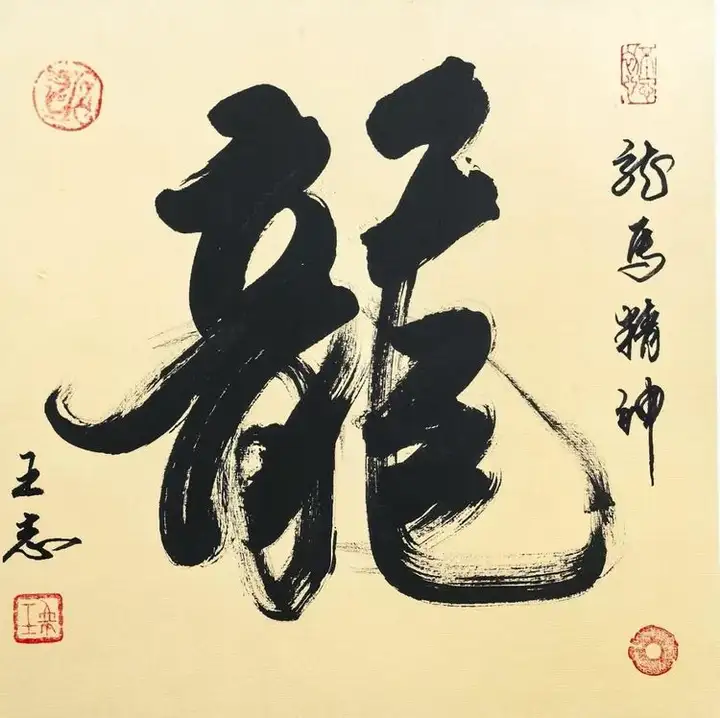 龍
龍馬精神
王志